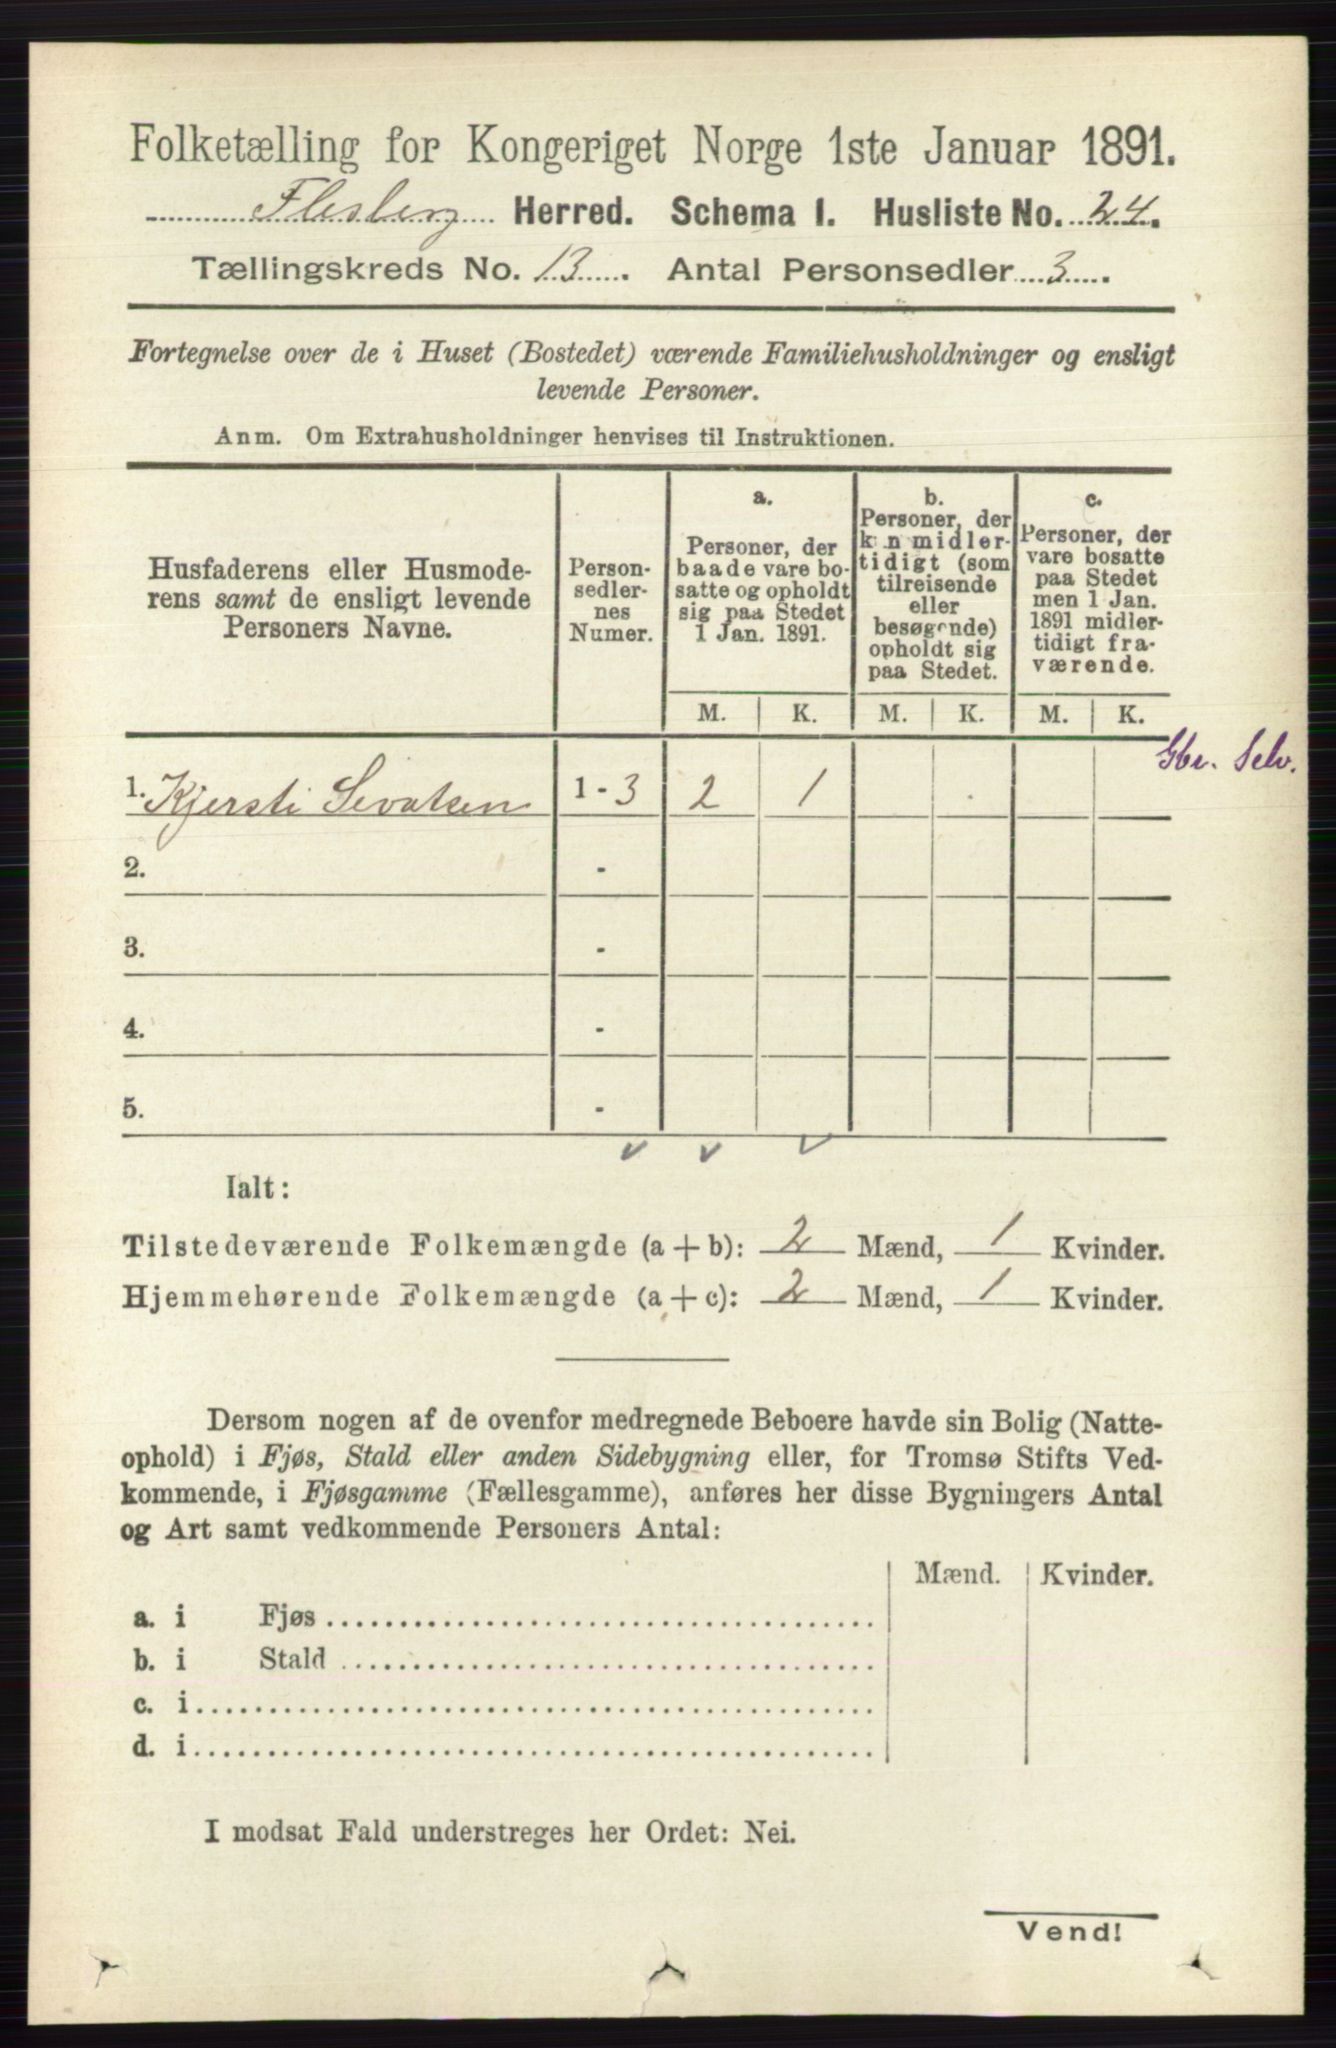 Folketælling for Kongeriget Norge 1ste Januar 1891.
Flesberg Herred. Schema I. Husliste No. 24.
Tællingskreds No. 13. Antal Personsedler 3.
Fortegnelse over de i Huset (Bostedet) værende Familiehusholdninger og ensligt
levende Personer.
Anm. Om Extrahusholdninger henvises til Instruktionen.
Husfaderens eller Husmode-
rens samt de ensligt levende
Personers Navne.
Person-
sedler-
nes
Numer.
a.
Personer, der
baade vare bo-
satte og opholdt
sig paa Stedet
1 Jan. 1891.
b.
Personer, der
kun midler-
tidigt (som
tilreisende
eller
besøgende)
opholdt sig
paa Stedet.
c.
Personer, der
vare bosatte
paa Stedet
men 1 Jan.
1891 midler-
tidigt fra-
værende.
M. K. M. K. M. K.
Gbr. Selv.
1. Kjersti Sevatsen 1 - 3 2 1
2. -
3. -
4. -
5. -
Ialt:
Tilstedeværende Folkemængde (a + b): 2 Mænd, 1 Kvinder.
Hjemmehørende Folkemængde (a + c): 2 Mænd, 1 Kvinder.
Dersom nogen af de ovenfor medregnede Beboere havde sin Bolig (Natte-
ophold) i Fjøs, Stald eller anden Sidebygning eller, for Tromsø Stifts Ved-
kommende, i Fjøsgamme (Fællesgamme), anføres her disse Bygningers Antal
og Art samt vedkommende Personers Antal:
Mænd. Kvinder.
a. i Fjøs
b. i Stald
c. i
d. i
I modsat Fald understreges her Ordet: Nei.
Vend!